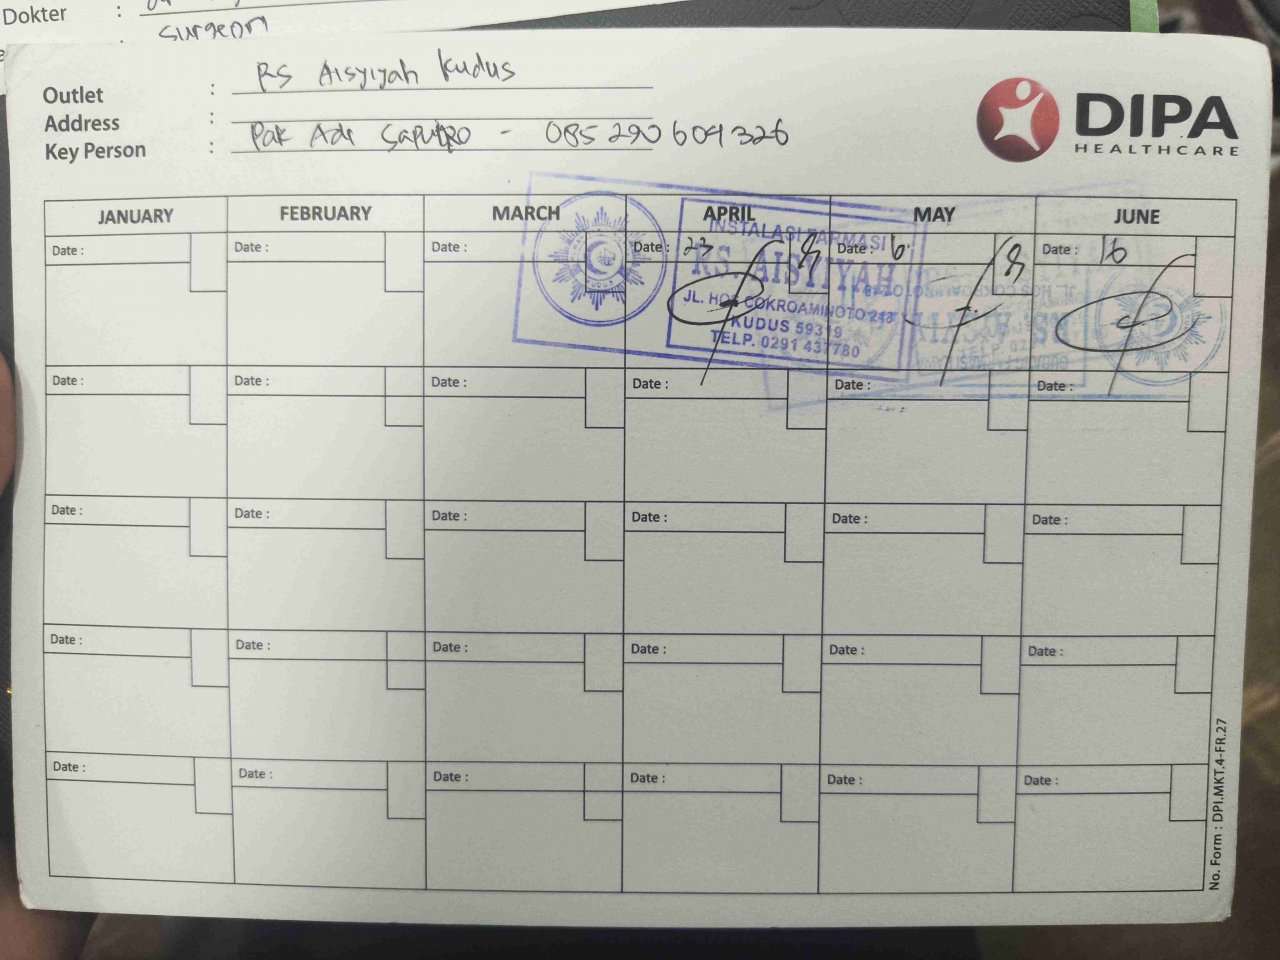 Dokter :
: Surgeon
Outlet : RS Aisyiyah Kudus
Address :
Key Person : Pak Adi Saputro - 085290604326
DIPA
HEALTHCARE
JANUARY FEBRUARY MARCH APRIL MAY JUNE
Date : Date : Date : Date : 23 Date : 6 Date : 16
INSTALASI FARMASI
RS. AISYIYAH
JL. HOS COKROAMINOTO 248
KUDUS 59319
TELP. 0291 437780
Date : Date : Date : Date : Date : Date :
Date : Date : Date : Date : Date : Date :
Date : Date : Date : Date : Date : Date :
Date : Date : Date : Date : Date : Date :
No. Form : DPI.MKT.4-FR.27